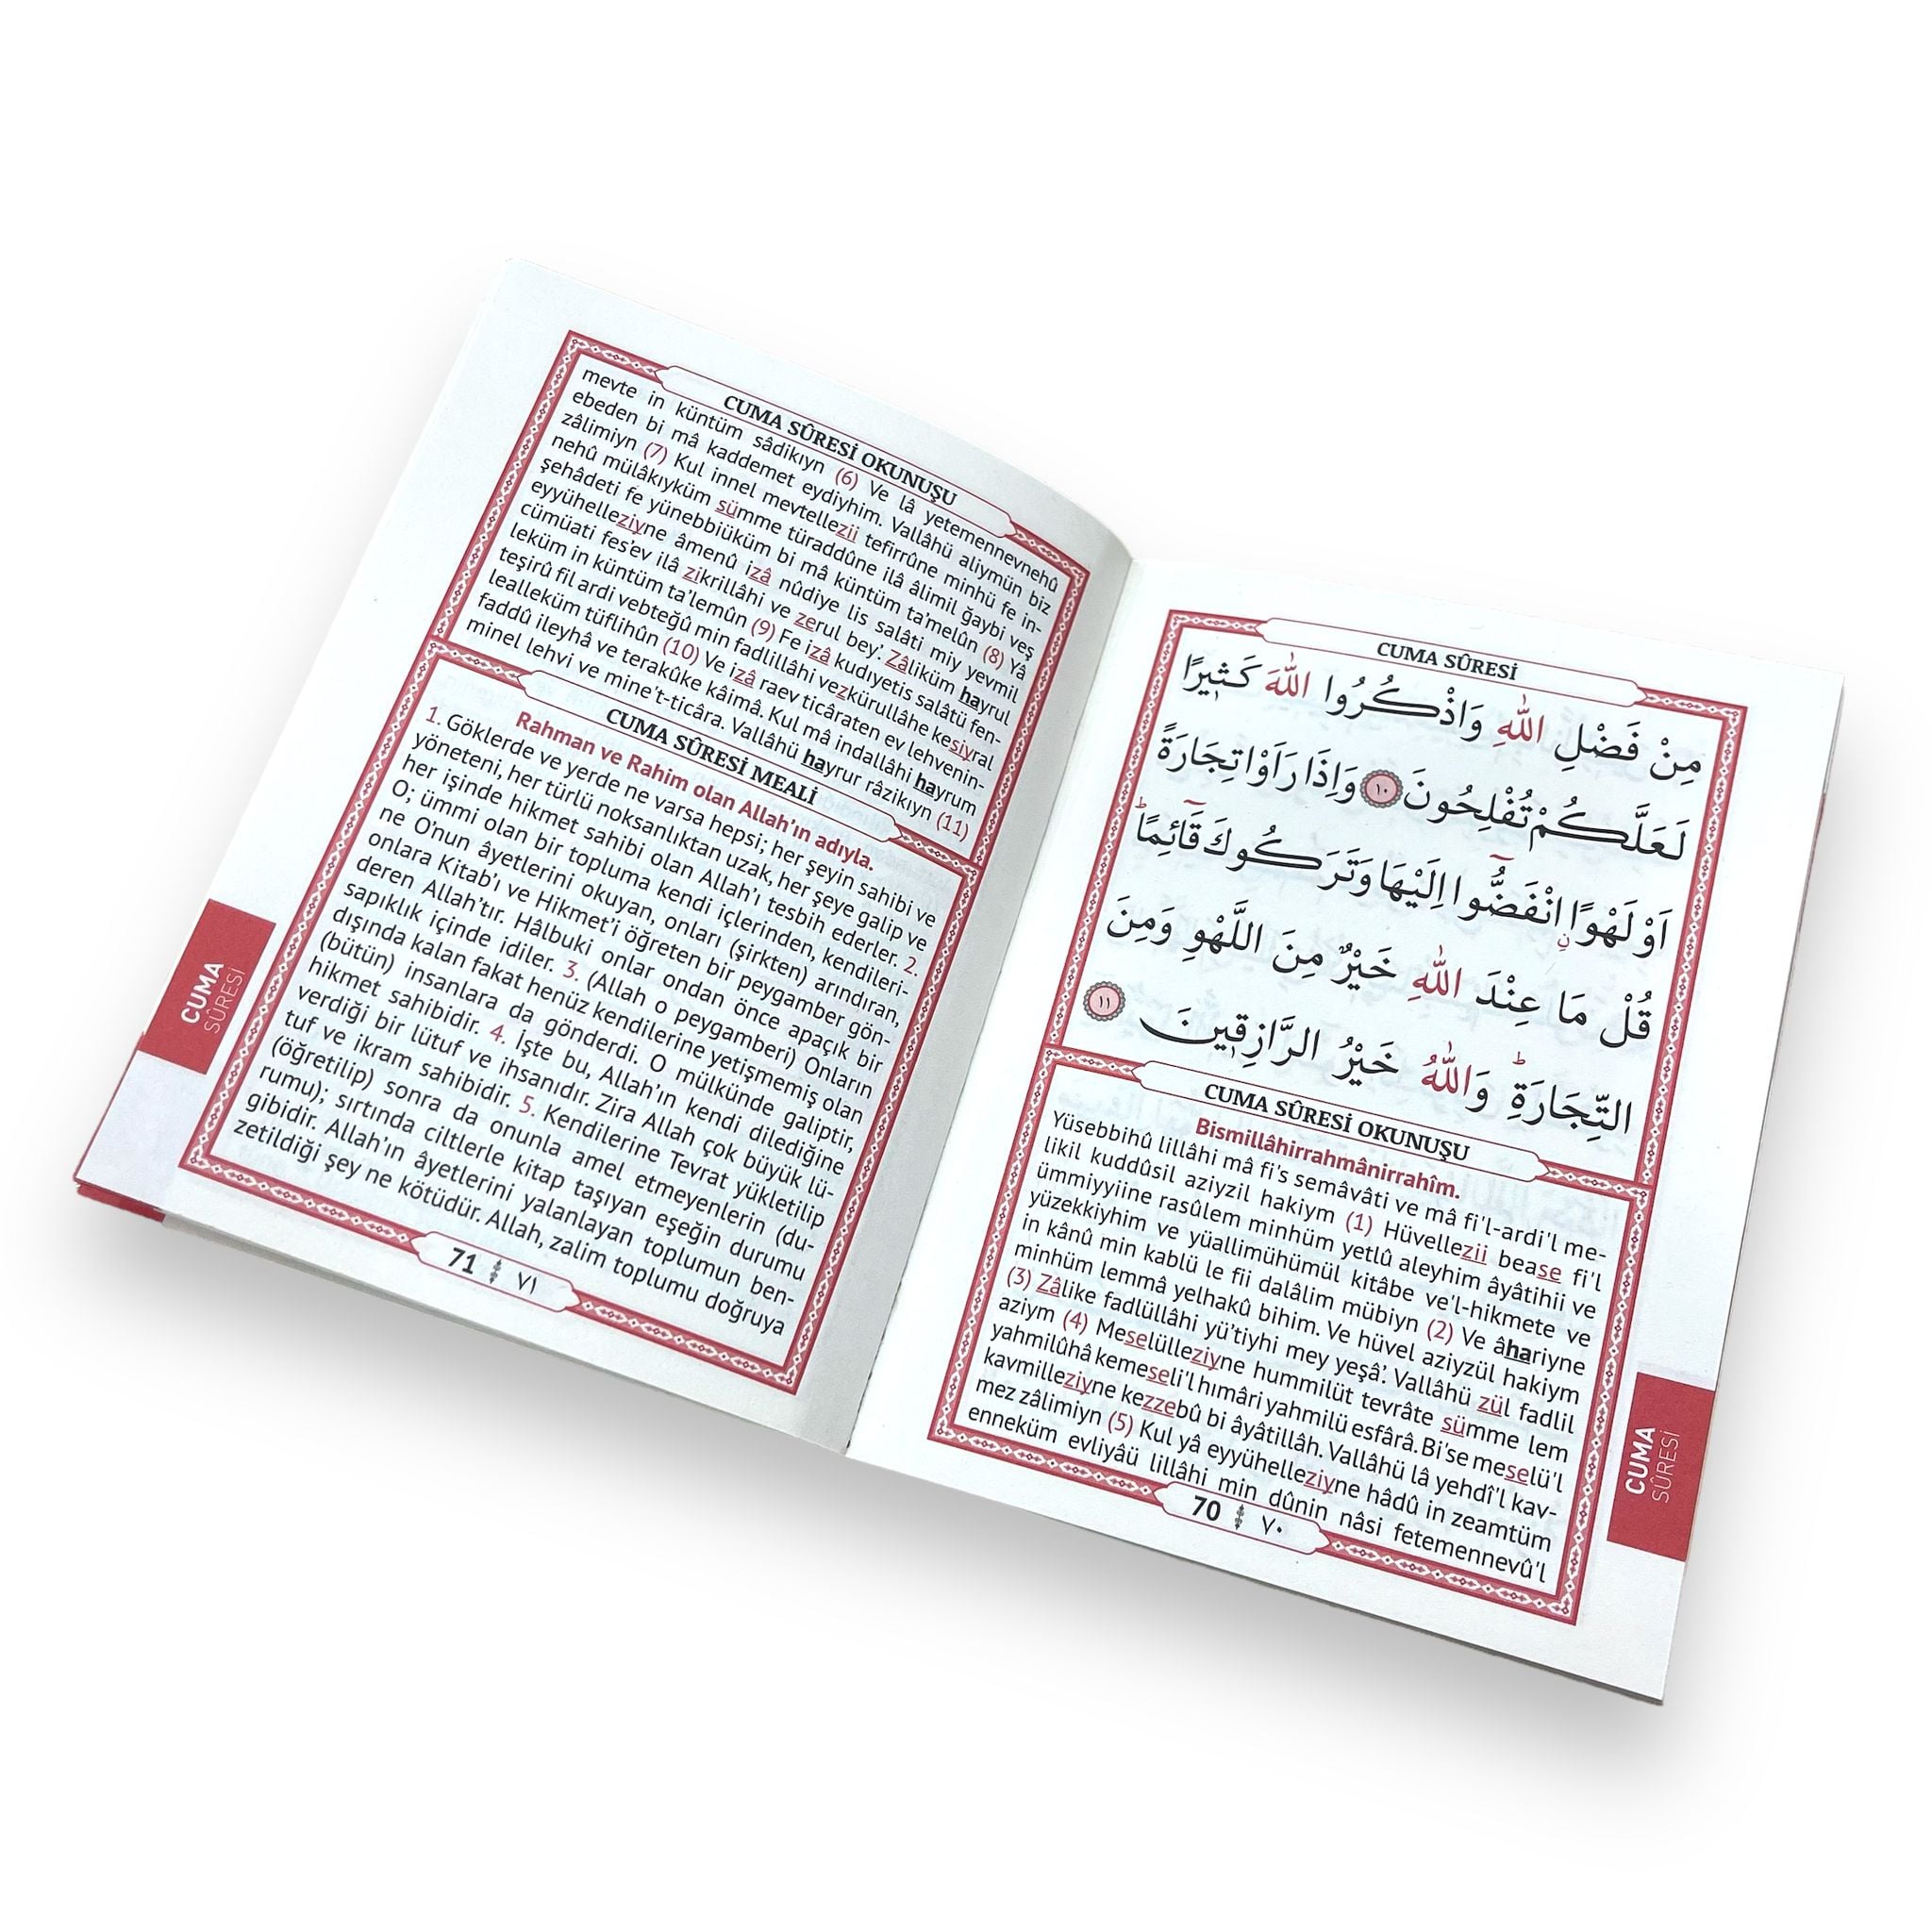 CUMA SÛRESİ
مِنْ فَضْلِ اللّٰهِ وَاذْكُرُوا اللّٰهَ كَث۪يرًا
لَعَلَّكُمْ تُفْلِحُونَ ﴿١٠﴾ وَاِذَا رَاَوْا تِجَارَةً
اَوْ لَهْوًاۨ انْفَضُّٓوا اِلَيْهَا وَتَرَكُوكَ قَٓائِمًاۜ
قُلْ مَا عِنْدَ اللّٰهِ خَيْرٌ مِنَ اللَّهْوِ وَمِنَ
التِّجَارَةِۜ وَاللّٰهُ خَيْرُ الرَّازِق۪ينَ ﴿١١﴾
CUMA SÛRESİ OKUNUŞU
Bismillâhirrahmânirrahîm.
Yüsebbihû lillâhi mâ fi's semâvâti ve mâ fi'l-ardi'l me-
likil kuddûsil aziyzil hakiym (1) Hüvellezii bease fi'l
ümmiyyiine rasûlem minhüm yetlû aleyhim âyâtihii ve
yüzekkiyhim ve yüallimühümül kitâbe ve'l-hikmete ve
in kânû min kablü le fii dalâlim mübiyn (2) Ve âhariyne
minhüm lemmâ yelhakû bihim. Ve hüvel aziyzül hakiym
(3) Zâlike fadlüllâhi yü'tiyhi mey yeşâ'. Vallâhü zül fadlil
aziym (4) Meselülleziyne hummilüt tevrâte sümme lem
yahmilûhâ kemeseli'l hımâri yahmilü esfârâ. Bi'se meselü'l
kavmilleziyne kezzebû bi âyâtillâh. Vallâhü lâ yehdî'l kav-
mez zâlimiyn (5) Kul yâ eyyühelleziyne hâdû in zeamtüm
enneküm evliyâü lillâhi min dûnin nâsi fetemennevû'l
70 ٧٠
CUMA SÛRESİ
CUMA SÛRESİ OKUNUŞU
mevte in küntüm sâdikıyn (6) Ve lâ yetemennevnehû
ebeden bi mâ kaddemet eydiyhim. Vallâhü aliymün biz
zâlimiyn (7) Kul innel mevtellezii tefirrûne minhü fe in-
nehû mülâkıyküm sümme türaddûne ilâ âlimil ğaybi veş
şehâdeti fe yünebbiüküm bi mâ küntüm ta'melûn (8) Yâ
eyyühelleziyne âmenû izâ nûdiye lis salâti miy yevmil
cümüati fes'ev ilâ zikrillâhi ve zerul bey'. Zâliküm hayrul
leküm in küntüm ta'lemûn (9) Fe izâ kudıyetis salâtü fen-
teşirû fil ardi vebteğû min fadlillâhi vezkürullâhe kesiyral
lealleküm tüflihûn (10) Ve izâ raev ticâraten ev lehvenin-
faddû ileyhâ ve terakûke kâimâ. Kul mâ indallâhi hayrum
minel lehvi ve mine't-ticâra. Vallâhü hayrur râzikıyn (11)
CUMA SÛRESİ MEALİ
Rahman ve Rahim olan Allah'ın adıyla.
1. Göklerde ve yerde ne varsa hepsi; her şeyin sahibi ve
yöneteni, her türlü noksanlıktan uzak, her şeye galip ve
her işinde hikmet sahibi olan Allah'ı tesbih ederler. 2.
O; ümmi olan bir topluma kendi içlerinden, kendileri-
ne O'nun âyetlerini okuyan, onları (şirkten) arındıran,
onlara Kitab'ı ve Hikmet'i öğreten bir peygamber gön-
deren Allah'tır. Hâlbuki onlar ondan önce apaçık bir
sapıklık içinde idiler. 3. (Allah o peygamberi) Onların
dışında kalan fakat henüz kendilerine yetişmemiş olan
(bütün) insanlara da gönderdi. O mülkünde galiptir,
hikmet sahibidir. 4. İşte bu, Allah'ın kendi dilediğine
verdiği bir lütuf ve ihsanıdır. Zira Allah çok büyük lü-
tuf ve ikram sahibidir. 5. Kendilerine Tevrat yükletilip
(öğretilip) sonra da onunla amel etmeyenlerin (du-
rumu); sırtında ciltlerle kitap taşıyan eşeğin durumu
gibidir. Allah'ın âyetlerini yalanlayan toplumun ben-
zetildiği şey ne kötüdür. Allah, zalim toplumu doğruya
71 ٧١
CUMA SÛRESİ